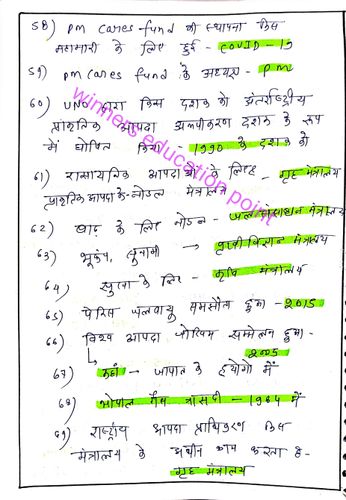 58) PM cares fund की स्थापना किस
महामारी के लिए हुई - COVID-19
59) PM cares fund के अध्यक्ष - PM
60) UNO द्वारा किस दशक को अंतर्राष्ट्रीय
प्राकृतिक आपदा अल्पीकरण दशक के रूप
में घोषित किया - 1990 के दशक को
61) रासायनिक आपदाओं के लिए - गृह मंत्रालय
प्राकृतिक आपदा के नोडल मंत्रालय
62) बाढ़ के लिए नोडल - जल संसाधन मंत्रालय
63) भूकंप, सुनामी → पृथ्वी विज्ञान मंत्रालय
64) सूखा के लिए - कृषि मंत्रालय
65) पेरिस जलवायु समझौता हुआ - 2015
66) विश्व आपदा जोखिम सम्मेलन हुआ -
2005
67) कहाँ - जापान के ह्योगो में
68) भोपाल गैस त्रासदी - 1984 में
69) राष्ट्रीय आपदा प्राधिकरण किस
मंत्रालय के अधीन काम करता है -
गृह मंत्रालय
winners education point